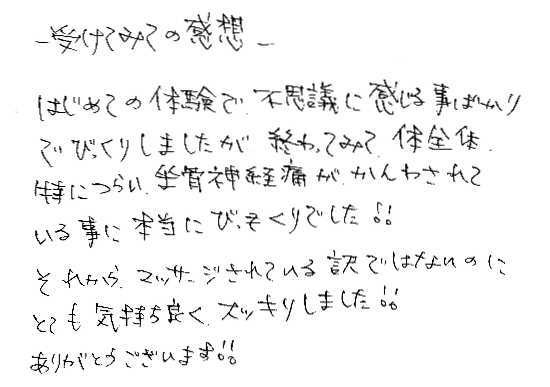 －受けてみての感想－
はじめての体験で、不思議に感じる事ばかり
でびっくりしましたが 終わってみて、体全体、
特につらい、坐骨神経痛が、かんわされて
いる事に本当にびっくりでした!!
それから、マッサージされている訳ではないのに
とても気持ち良く、スッキリしました!!
ありがとうございます!!